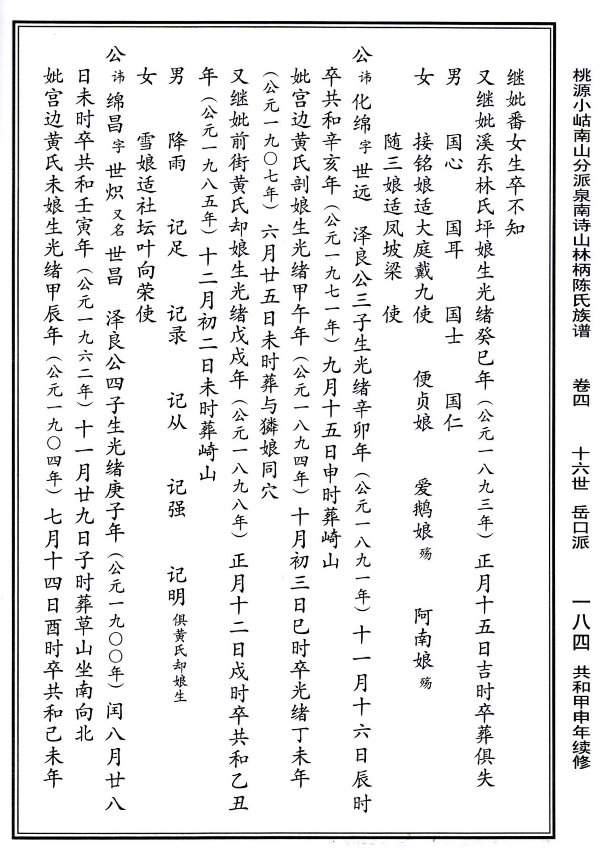 桃源小岵南山分派泉南诗山林柄陈氏族谱 卷四 十六世 岳口派 一八四 共和甲申年续修
继妣番女生卒不知
又继妣溪东林氏坪娘生光绪癸巳年（公元一八九三年）正月十五日吉时卒葬俱失
男 国心 国耳 国士 国仁
女 接铭娘适大庭戴九使 便贞娘 爱鹅娘殇 阿南娘殇
随三娘适凤坡梁 使
公讳化绵字世远 泽良公三子生光绪辛卯年（公元一八九一年）十一月十六日辰时
卒共和辛亥年（公元一九七一年）九月十五日申时葬崎山
妣宫边黄氏剖娘生光绪甲午年（公元一八九四年）十月初三日巳时卒光绪丁未年
（公元一九〇七年）六月廿五日未时葬与獜娘同穴
又继妣前街黄氏却娘生光绪戊戌年（公元一八九八年）正月十二日戌时卒共和乙丑
年（公元一九八五年）十二月初二日未时葬崎山
男 降雨 记足 记录 记从 记强 记明俱黄氏却娘生
女 雪娘适社坛叶向荣使
公讳绵昌字世炽又名世昌 泽良公四子生光绪庚子年（公元一九〇〇年）闰八月廿八
日未时卒共和壬寅年（公元一九六二年）十一月廿九日子时葬草山坐南向北
妣宫边黄氏未娘生光绪甲辰年（公元一九〇四年）七月十四日酉时卒共和己未年